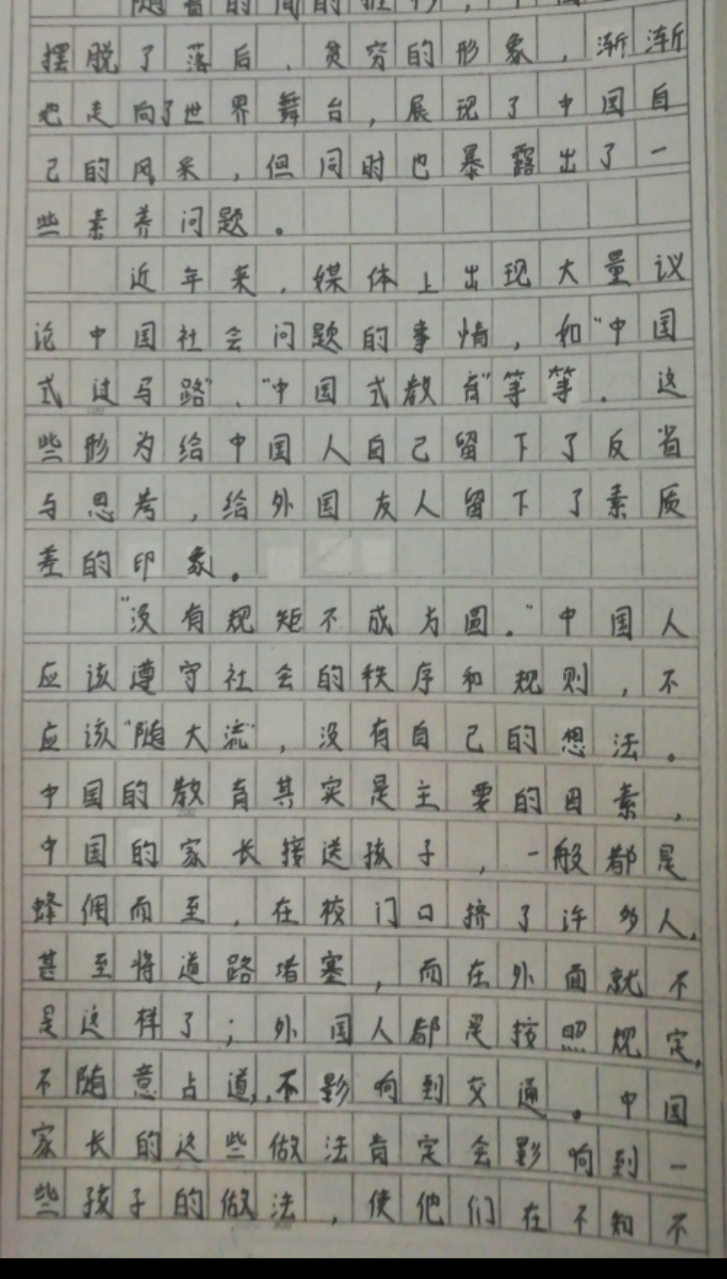 随着时间的推移，中国
摆脱了落后、贫穷的形象，渐渐
地走向了世界舞台，展现了中国自
己的风采，但同时也暴露出了一
些素养问题。
近年来，媒体上出现大量议
论中国社会问题的事情，和“中国
式过马路”、“中国式教育”等等。这
些形为给中国人自己留下了反省
与思考，给外国友人留下了素质
差的印象。
“没有规矩不成方圆。”中国人
应该遵守社会的秩序和规则，不
应该“随大流”，没有自己的想法。
中国的教育其实是主要的因素，
中国的家长接送孩子，一般都是
蜂佣而至，在校门口挤了许多人，
甚至将道路堵塞，而在外面就不
是这样了；外国人都是按照规定，
不随意占道，不影响到交通。中国
家长的这些做法肯定会影响到一
些孩子的做法，使他们在不知不